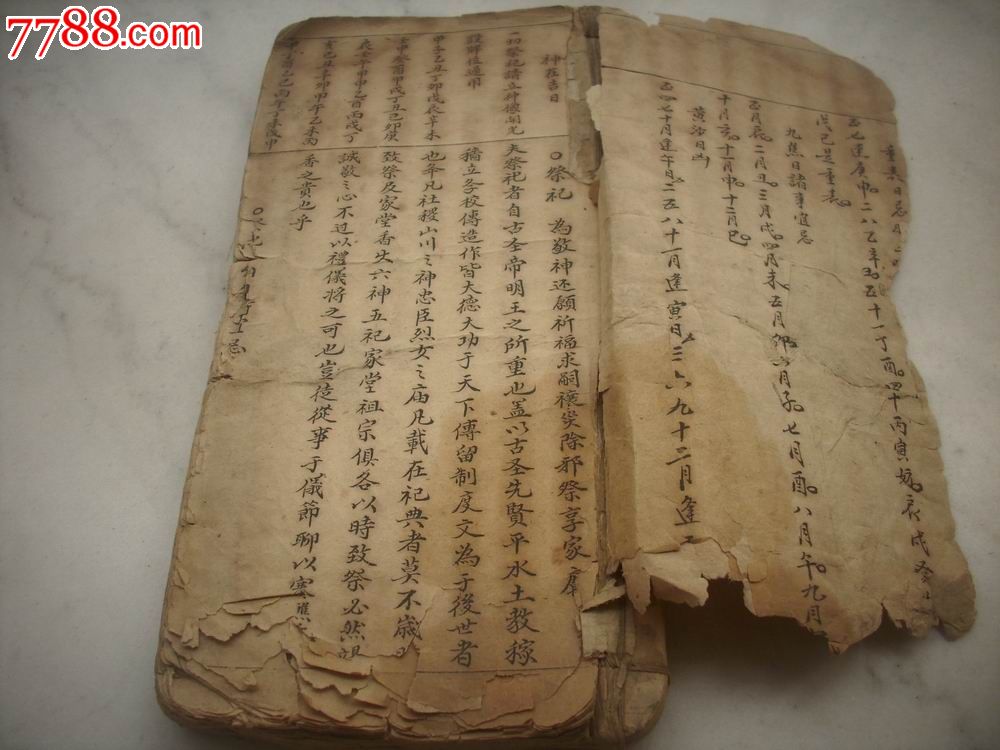 7788.com
重喪日忌
正七連庚申二八乙辛五十一丁四十丙寅
戊己是重喪
九焦日諸事宜忌
正月辰二月丑三月戌四月未五月卯六月子七月酉八月午九月
十月亥十一月申十二月巳
黄沙日凶
正四七十月逢午日二五八十一月逢寅日三六九十二月逢
神在吉日
一切祭祀請立神像開光
設醉位通用
甲子乙丑丁卯戊辰辛未
壬申癸酉甲戌丁丑己卯庚
○祭祀 為敬神还願祈福求嗣禳災除邪祭享家庙
夫祭祀者自古圣帝明王之所重也盖以古圣先賢平水土教稼
穑立学校傳造作皆大德大功于天下傳留制度文為于後世者
也年凡社稷山川之神忠臣烈女之庙凡載在祀典者莫不歲時
致祭及家堂香火六神五祀家堂祖宗俱各以時致祭必然竭
誠敬之心不过以禮儀將之可也豈徒從事于儀節聊以塞
香之貴也乎